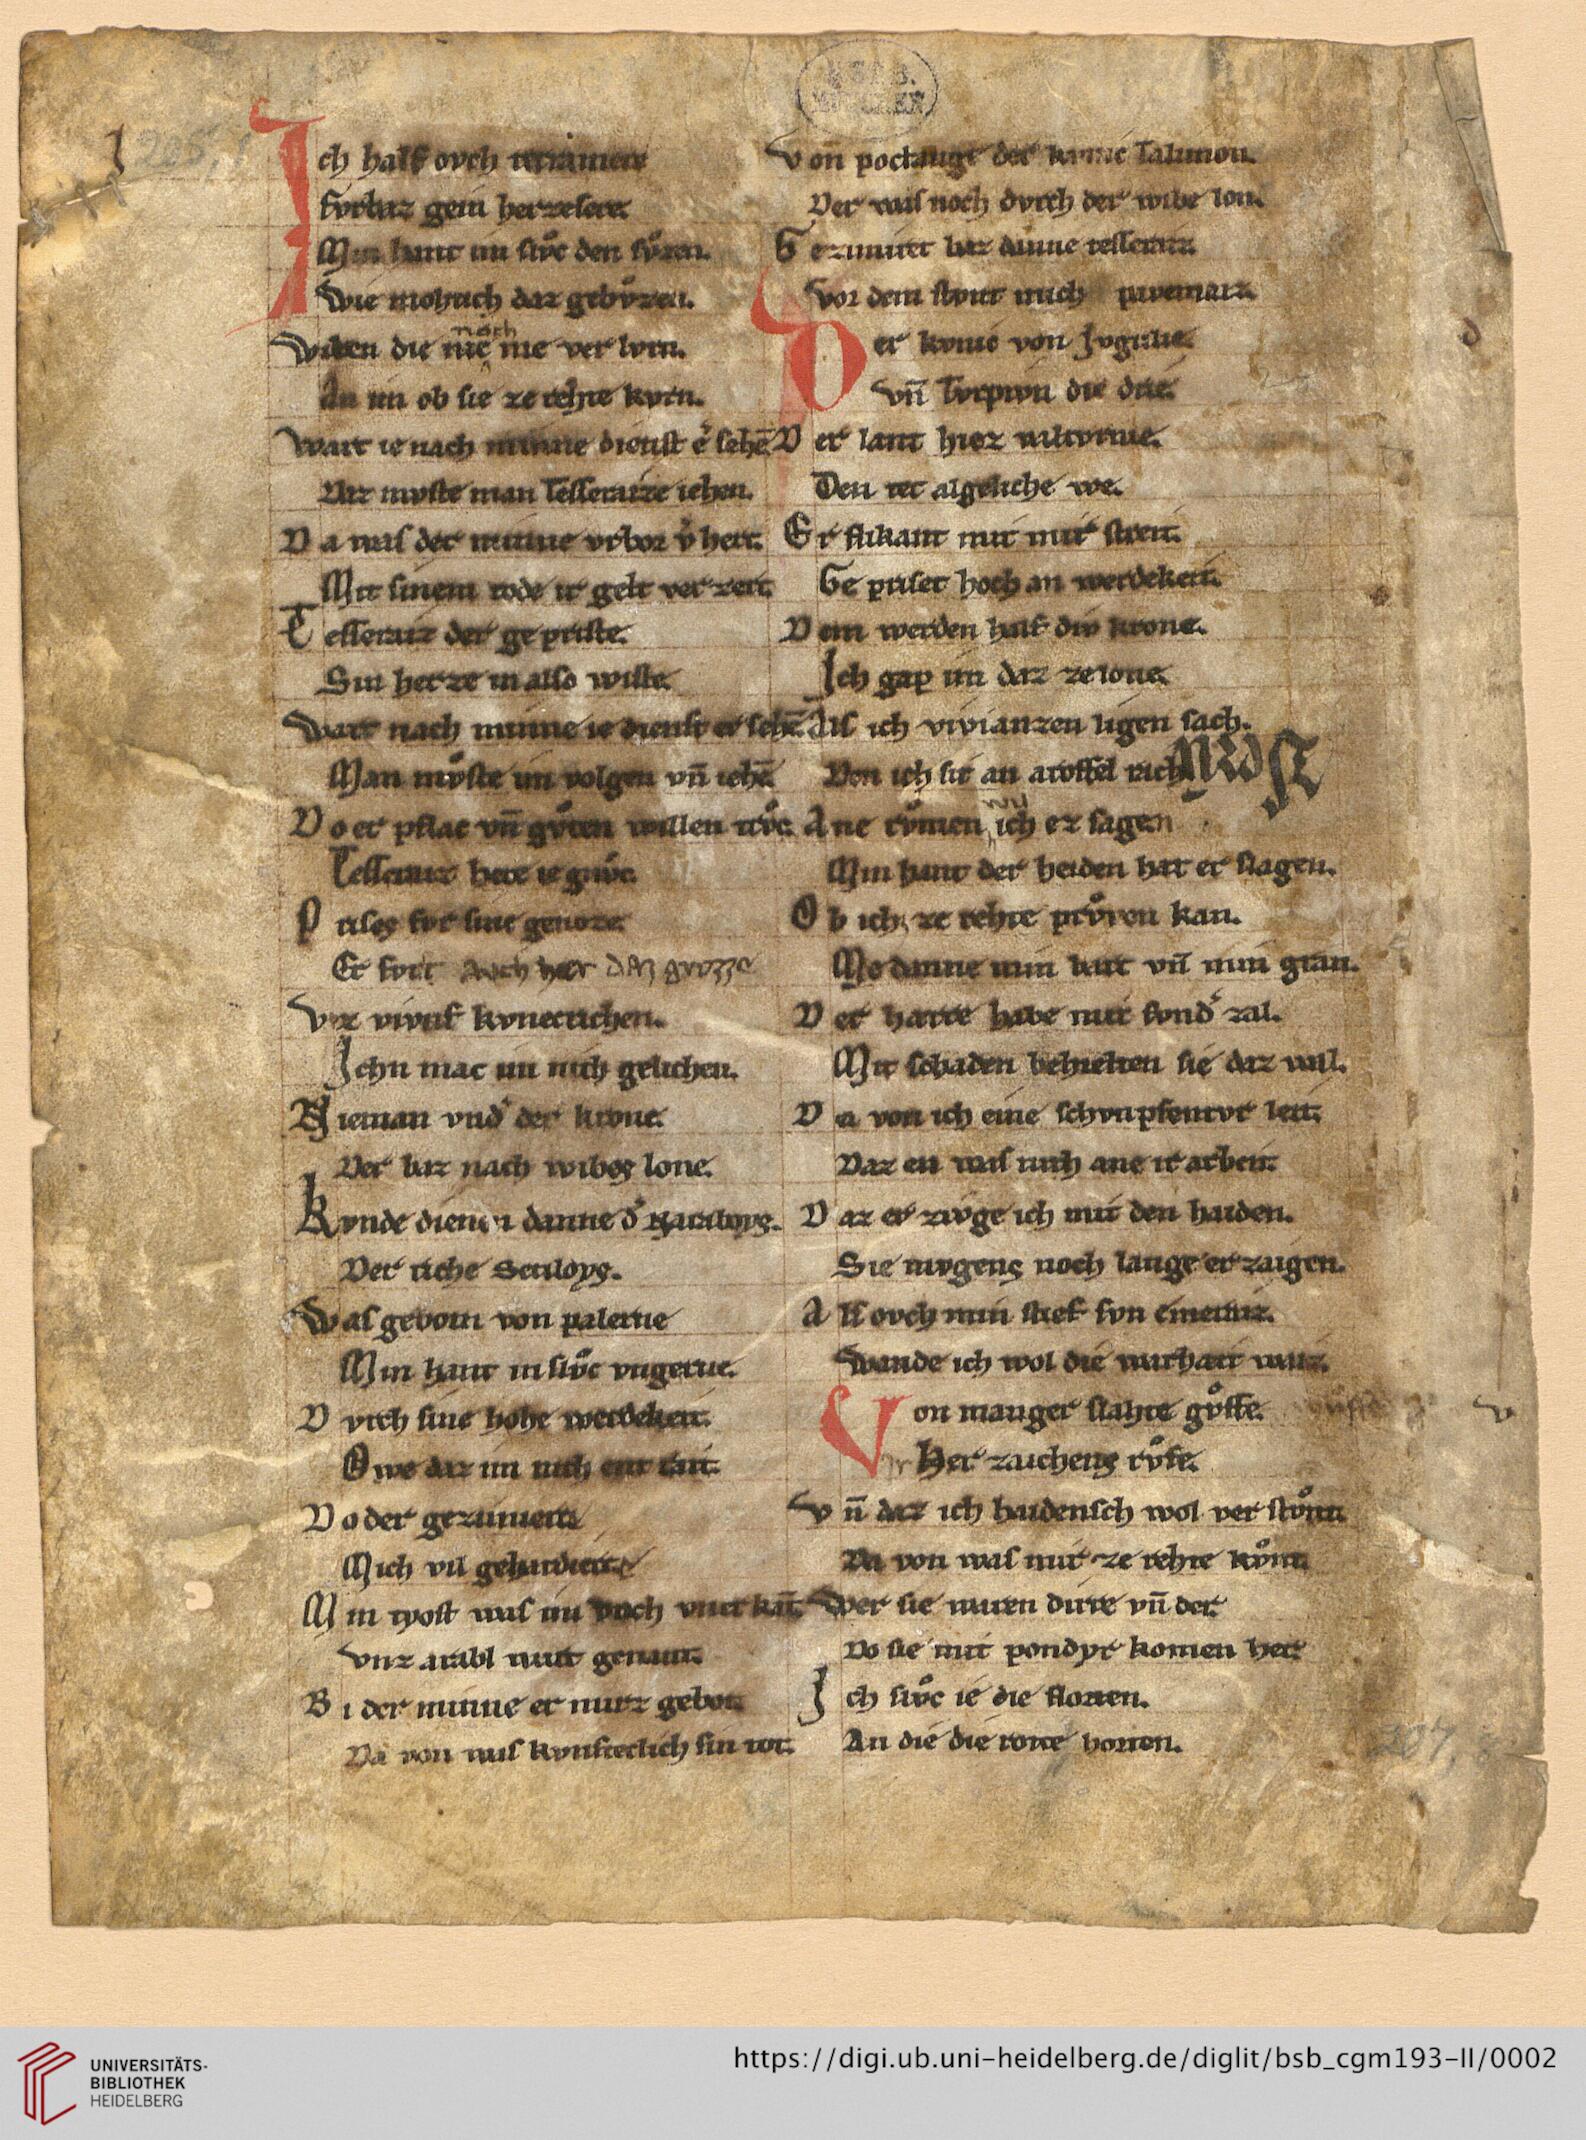 205, 1
Ich half ovch terramere
fvrbaz gein herzesere.
Min hant im slvͦc den svͦzen.
wie moht ich daz gebvͦzen.
wiben die nie noch nie ver lvrn.
An im ob sie ze rehte kvrn.
wart ie nach minne dienst er sehē
Des mvste man Tesseraize iehen.
Da was der minne vrbor
Mit sinem tode ir gelt ver zert.
Tesseraiz der gepriste.
Sin herze in also wiste.
wart nach minne ie dienst er sehē
Man mvͦste im volgen vn̄ iehē
Do er pflac vn̄ gvͦten willen trvͦc.
Tesseraiz hete ie gnvͦc.
Prises fvr sine genoze.
Er fvrt avch her daz grozze
vz vivas kvnecrichen.
Ichn mac im niht gelichen.
Nieman vnd der krone.
Der baz nach wibes lone.
kvnde dienen danne der
Der riche Seziloys.
was geborn von palerne
Min hant in slvͦc vngerne.
Dvrch sine hohe werdekeit.
Owe daz im niht
Do der gezimierte
Mich vil gehardierte
Min tyost was im doch
vnz arabl wart genant.
Bi der minne er mirz gebot
Da von was kvnsteclich sin tot.
von poctange der kvnic Talimon.
Der was noch dvrch der wibe lon.
Gezimiert baz danne tesseraiz
vor dem stvnt mich
Der kvnic von Jvgulie.
vn̄ Tvrpivn die drie.
Der lant hiez valtvrnie.
Den tet algeliche we.
Er slikant mit mir streit.
Ge priset hoch an werdekeit.
Dem werden half div krone.
Ich gap im daz ze lone.
Als ich vivianzen ligen sach.
Den ich sit an aroffel rach
Ane rvͦmen wil ich ez sagen
Min hant der heiden hat er slagen.
Ob ich ze rehte prvͦven kan.
Mo danne min bart vn̄ min gran.
Der harre habe mit svnd zal.
Mit schaden behielten sie daz wal.
Da von ich eine schvnpfentvr leit.
Daz en was niht ane ir arbeit.
Daz er zivge ich mit den haiden.
Sie mvgens noch lange er zaigen.
Als ovch min stief svn emeraiz.
wande ich wol die warhait waiz.
Von manger slahte gvͦffe.
Her zaichens rvͦfe.
vn̄ daz ich haidensch wol ver stvͦnt
Da von was mir ze rehte kvͦnt.
wer sie waren dirre vn̄ der
Do sie mit pondyr komen her.
Ich slvͦc ie die florien.
An die die rotte horten.
207,
UNIVERSITÄTS-
BIBLIOTHEK
HEIDELBERG
https://digi.ub.uni-heidelberg.de/diglit/bsb_cgm193-II/0002